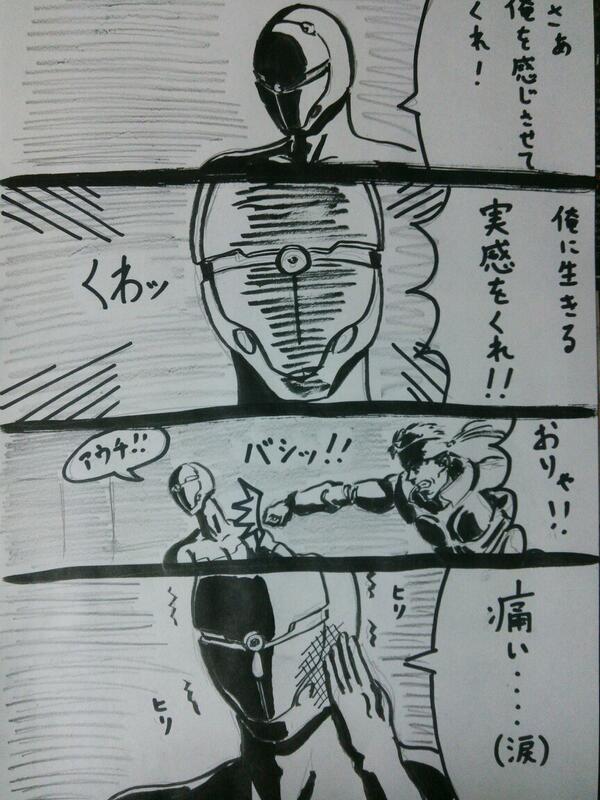 さぁ
俺を感じさせて
くれ！
俺に生きる
実感をくれ！！
くわッ
おりゃ！！
バシッ！！
アウチ！！
痛い・・・・
（涙）
ヒリ
ヒリ